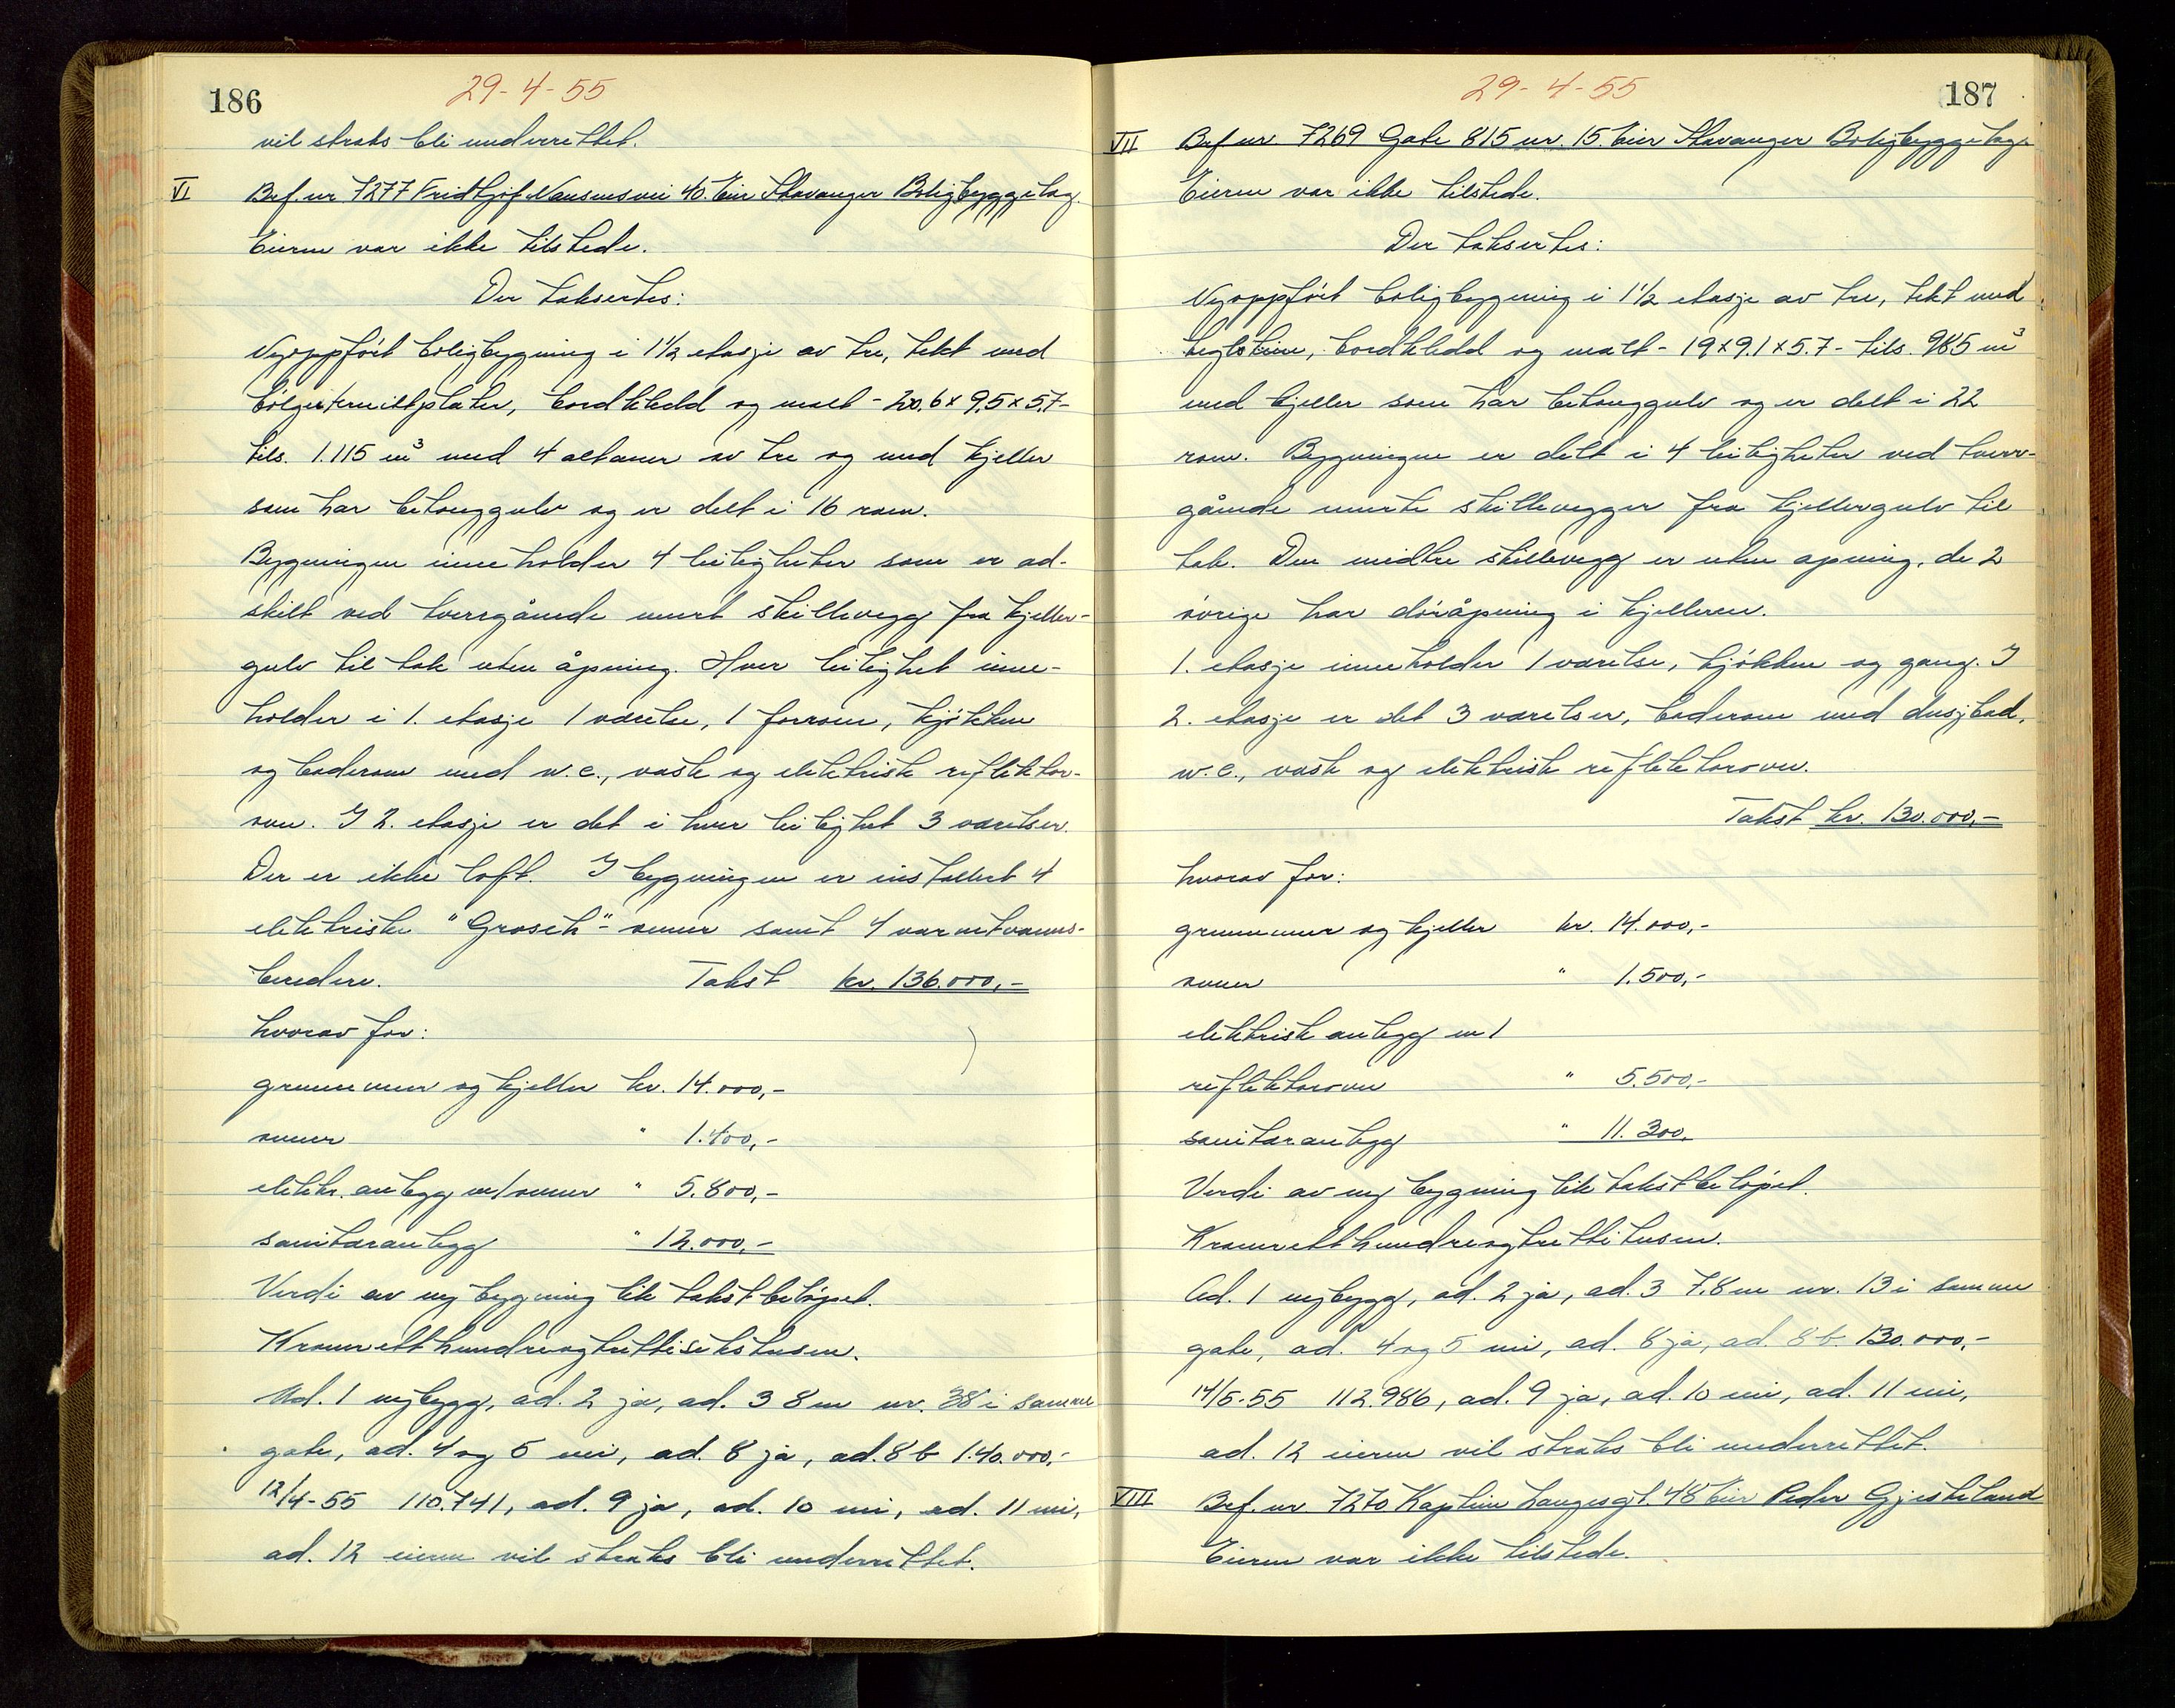 186
29-4-55
vil straks bli underrettet.
VI Bef. nr 7277 Fridthjof Nansensvei 40. Eier Stavanger Boligbyggelag.
Eieren var ikke tilstede.
Der taksertes:
Nyoppført boligbygning i 1½ etasje av tre, tekt med
bølgeeternittplater, bordkledd og malt - 20,6 x 9,5 x 5,7 -
tils. 1.115 m³ med 4 altaner av tre og med kjeller
som har betonggulv og er delt i 16 rom.
Bygningen inneholder 4 leiligheter som er ad-
skilt ved tverrgående murt skillevegg fra kjeller-
gulv til tak uten åpning. Hver leilighet inne-
holder i 1. etasje 1 værelse, 1 forrom, kjøkken
og baderom med w.c., vask og elektrisk reflektor-
ovn. I 2. etasje er det i hver leilighet 3 værelser.
Der er ikke loft. I bygningen er installert 4
elektriske "Grosch"- ovner samt 4 varmtvanns-
beredere. Takst kr. 136.000,-
hvorav for:
grunnmur og kjeller kr. 14.000,-
ovner " 1.400,-
elektr. anlegg m/ovner " 5.800,-
sanitæranlegg " 12.000,-
Verdi av ny bygning lik takstbeløpet.
Kroneretthundreogtrettisekstusen.
Ad. 1 nybygg, ad. 2 ja, ad. 3 8 m nr. 38 i samme
gate, ad. 4 og 5 nei, ad. 8 ja, ad. 8 b 140.000,-
12/4-55 110.741, ad. 9 ja, ad. 10 nei, ad. 11 nei,
ad. 12 eieren vil straks bli underrettet.
187
29-4-55
VII Bef nr. 7269 Gate 815 nr. 15. Eier Stavanger Boligbyggelag.
Eieren var ikke tilstede.
Der taksertes:
Nyoppført boligbygning i 1½ etasje av tre, tekt med
teglstein, bordkledd og malt - 19 x 9.1 x 5.7 - tils. 985 m³
med kjeller som har betonggulv og er delt i 22
rom. Bygningen er delt i 4 leiligheter ved tverr-
gående murte skillevegger fra kjellergulv til
tak. Den midtre skillevegg er uten apning, de 2
øvrige har døråpning i kjelleren.
1. etasje inneholder 1 værelse, kjøkken og gang. I
2. etasje er det 3 værelser, baderom med dusjbad,
w.c., vask og elektrisk reflektorovn.
Takst kr. 130.000,-
hvorav for:
grunnmur og kjeller kr. 14.000,-
ovner " 1.500,-
elektrisk anlegg m/
reflektorovn " 5.500,-
sanitæranlegg " 11.300,
Verdi av ny bygning lik takstbeløpet.
Kroneretthundreogtrettitusen.
Ad. 1 nybygg, ad. 2 ja, ad. 3 7.8 m nr. 13 i samme
gate, ad. 4 og 5 nei, ad. 8 ja, ad. 8 b. 130.000,-
14/5-55 112.986, ad. 9 ja, ad. 10 nei, ad. 11 nei,
ad. 12 eieren vil straks bli underrettet.
VIII Bef. nr. 7270 Kaptein Langesgt. 48 Eier Peder Gjesteland
Eieren var ikke tilstede.